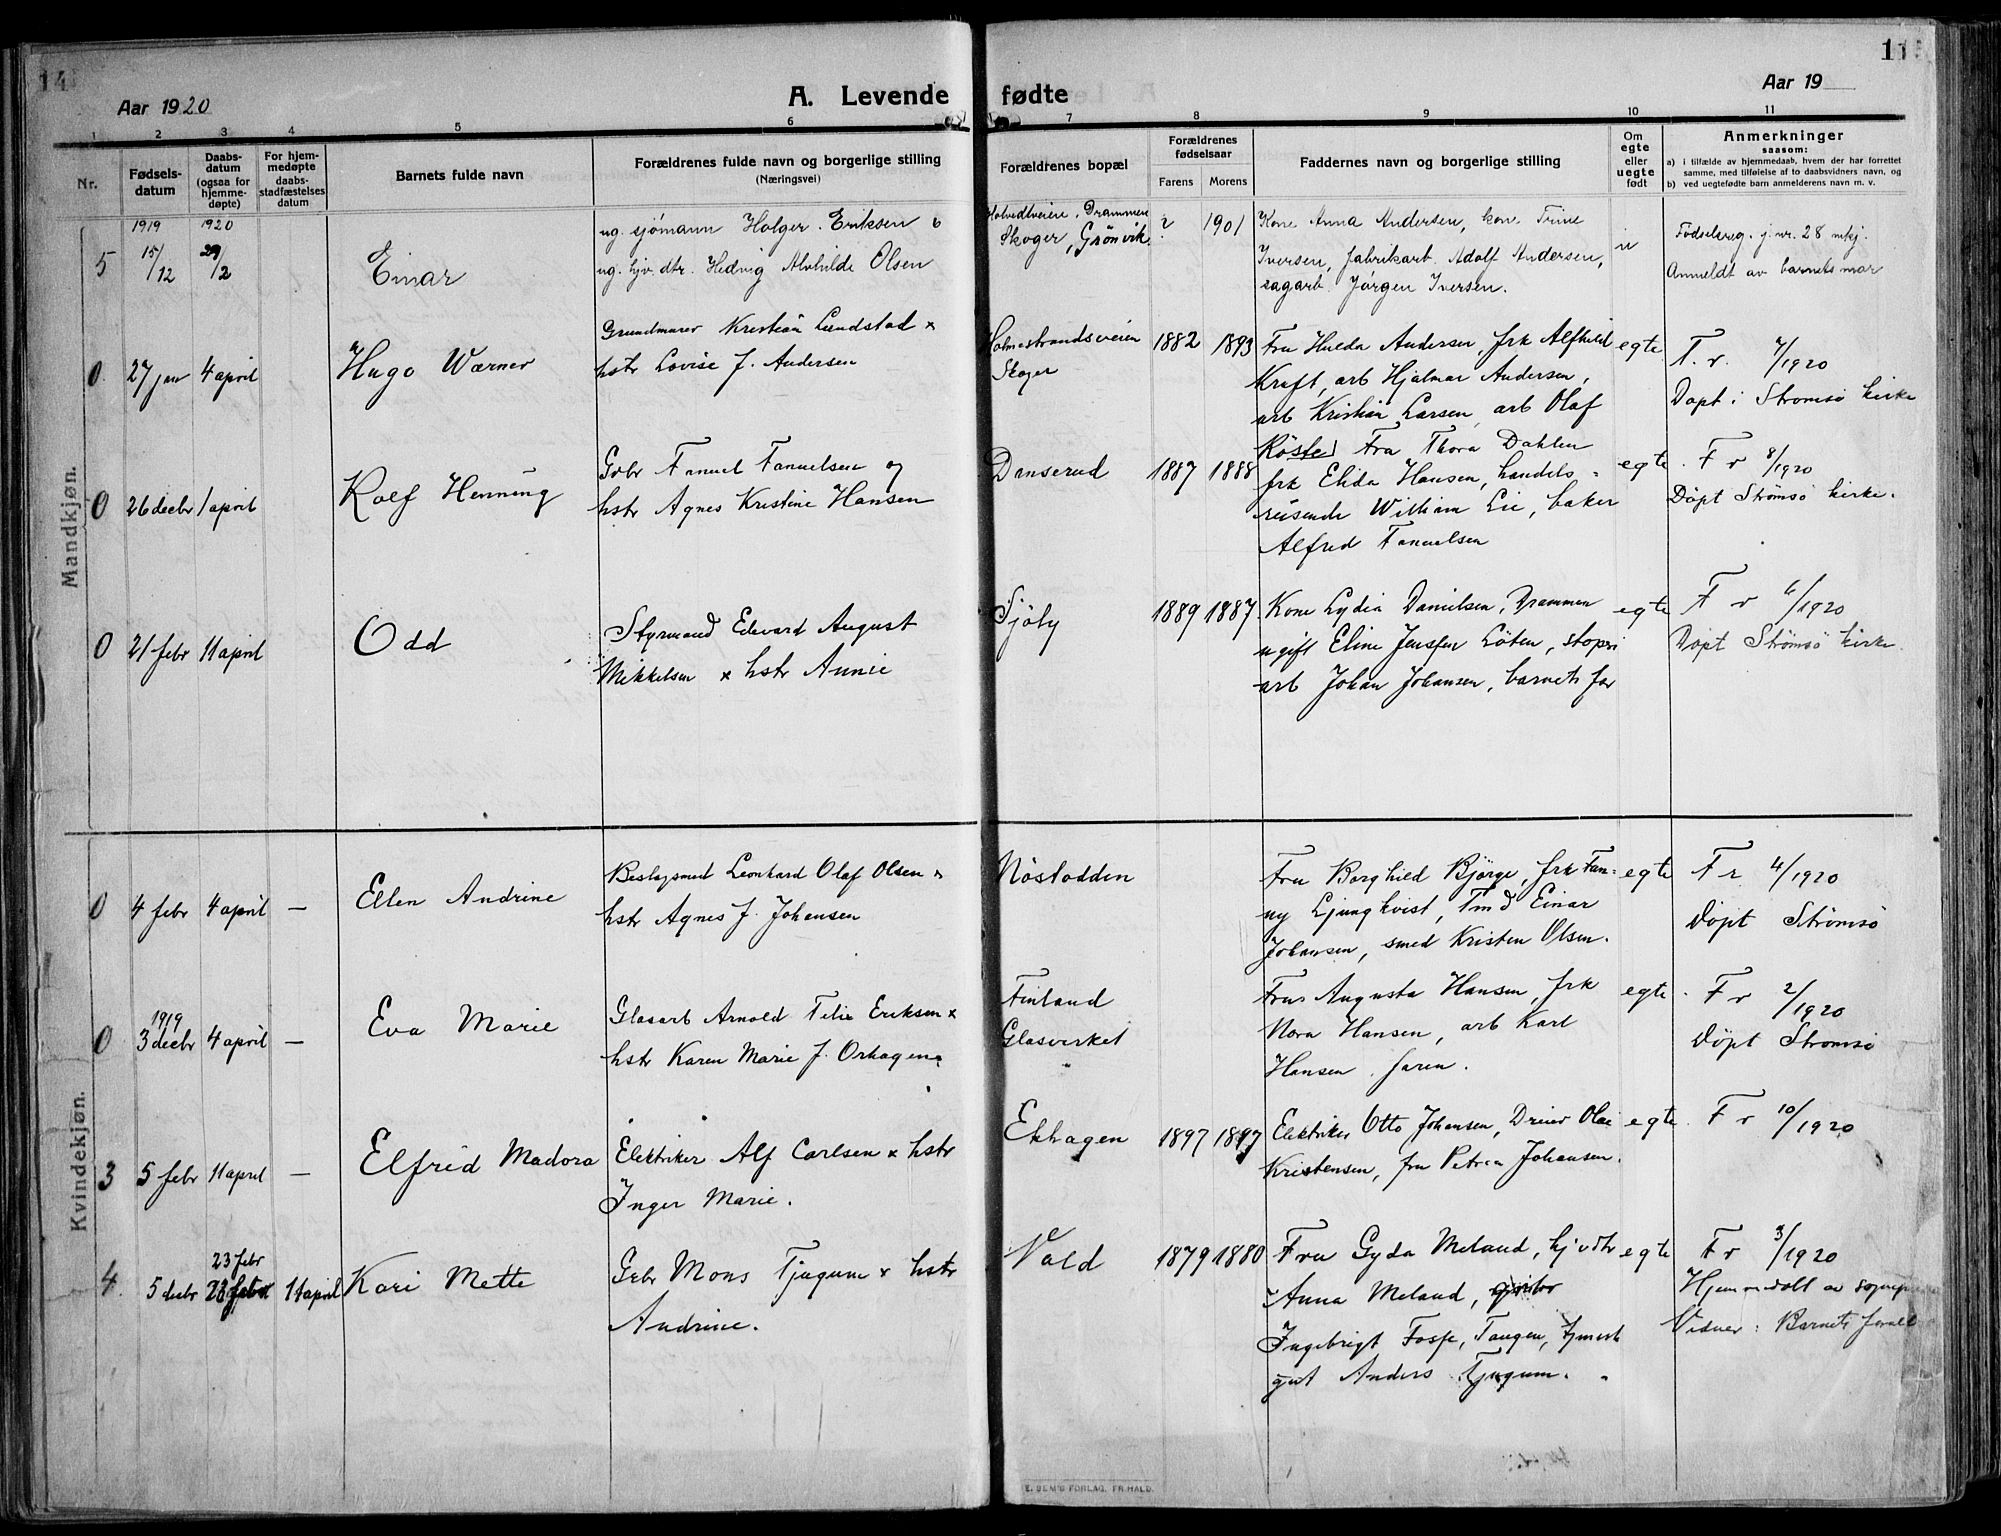 14
Aar 1920
A. Levende
1 2 3 4 5 6
Nr.
Fødsels-
datum
Daabs-
datum
(ogsaa for
hjemme-
døpte)
For hjem-
medøpte
daabs-
stadfæstelses
datum
Barnets fulde navn
Forældrenes fulde navn og borgerlige stilling
(Næringsvei)
Mandkjøn.
5
1919
15/12
1920
29/2
Einar
ug. sjømann Holger Eriksen
ug. hjv. dtr. Hedvig Alvhilde Olsen
0 27 jan 4 april
Hugo Wærner
Grundmurer Kristian Lundstad ×
hstr Lovise f. Andersen
0 26 decbr 1 april
Rolf Henning
Gvbr Fanuel Fanuelsen og
hstr Agnes Kristine Hansen
0 21 febr 11 april
Odd
Styrmand Edvard August
Mikkelsen × hstr Annie
Kvindekjøn.
0 4 febr 4 april —
Ellen Andrine
Beslagsmed Leonhard Olaf Olsen ×
hstr Agnes f. Johansen
1919
0 3 decbr 4 april —
Eva Marie
Glasarb Arnold Eriksen ×
hstr Karen Marie f. Orhagen
3 5 febr 11 april —
Elfrid Madora
Elektriker Alf Carlsen × hstr
Inger Marie.
23 febr
4. 5 decbr 11 april
Kari Mette
Gvbr Mons Tjugum × hstr
Andrine.
11
Aar 19
fødte
7 8 9 10 11
Forældrenes bopæl
Forældrenes
fødselsaar
Farens Morens
Faddernes navn og borgerlige stilling
Om
egte
eller
uegte
født
Anmerkninger
saasom:
a) i tilfælde av hjemmedaab, hvem der har forrettet
samme, med tilføielse af to daabsvidners navn, og
b) ved uegtefødte barn anmelderens navn m. v.
Drammen
Skoger, Grønvik
? 1901
Kone Anna Andersen, kone Trine
Iversen, fabrikarb. Adolf Andersen,
sagarb. Jørgen Iversen.
u
Fødselsreg. j. nr. 28 mkj.
Anmeldt av barnets mor
Holmestrandsveien
Skoger
1882 1893
Fru Hulda Andersen, frk Alfhild
Kraft, arb Hjalmar Andersen,
arb Kristian Larsen, arb Olaf
Røsted
egte
F. r. 7/1920
Døpt i Strømsø kirke
Danserud
1887 1888
Fru Thora Dahlen
frk Elida Hansen, handels-
reisende William Lie, baker
Alfred Fanuelsen
egte
F r 8/1920
Døpt Strømsø kirke.
Sjøby
1889 1887
Kone Lydia Danielsen, Drammen
ugift Eline Jenssen Løten, støperi
arb Johan Johansen, barnets far
egte
F r 6/1920
Døpt Strømsø kirke
Nøstodden
Fru Borghild Bjørge, frk Fan-
ny Ljungkvist, Einar
Johansen, smed Kristen Olsen.
egte
F r 4/1920
Døpt Strømsø
Finland
Glasverket
Fru Augusta Hansen, frk
Nora Hansen, arb Karl
Hansen, faren.
egte
F r 2/1920
Døpt Strømsø
Ekhagen
1897 1897
Elektriker Otto Johansen, Dreier Olai
Kristensen, fru Petrea Johansen.
egte
F r 10/1920
Vold
1879 1880
Fru Gyda Meland, hjv dtr
Anna Meland,
Ingebrigt Fosse, Tangen,
gut Anders Tjugum.
egte
F r 3/1920
Hjemmedøbt av sognepr
Vidner: Barnets foreld
E. SEM'S FORLAG, FR.HALD.